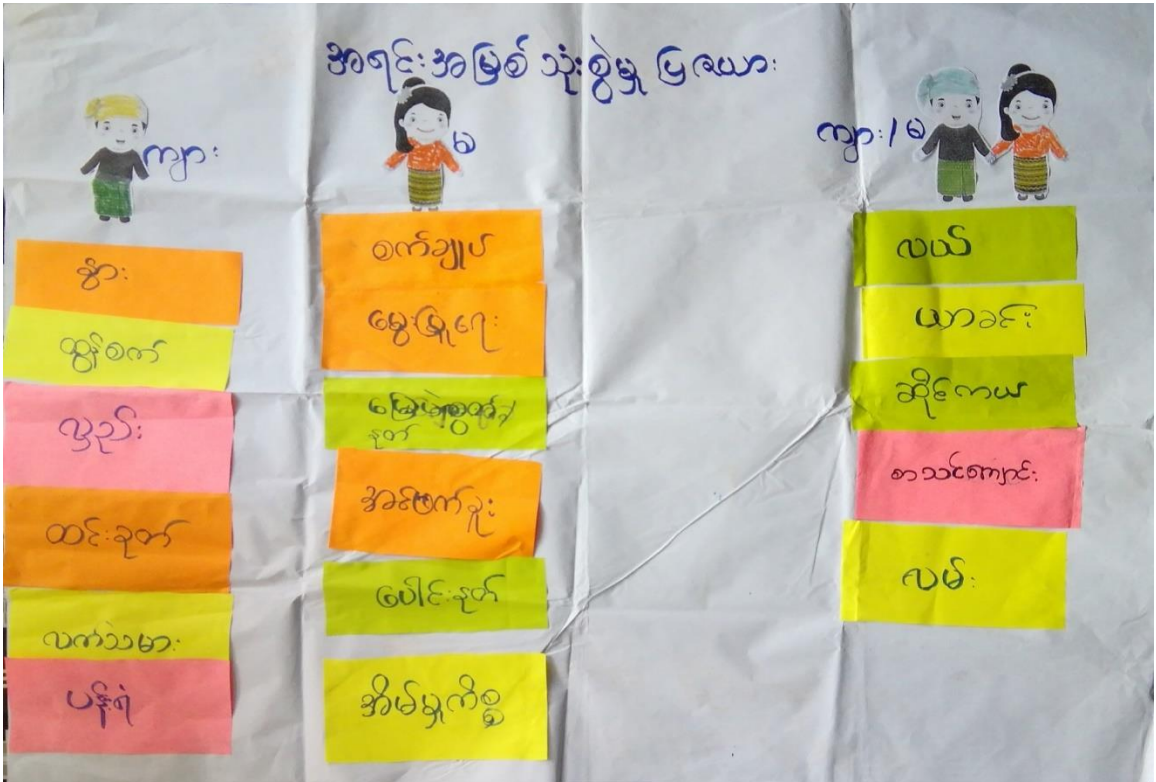 အရင်းအမြစ် သုံးစွဲမှု ပြဇယား
ကျား
မ
ကျား/မ
နွား
ထွန်စက်
လှည်း
ထင်းခုတ်
လက်သမား
ပန်းရံ
စက်ချုပ်
မွေးမြူရေး
နုတ်
အင်ဖက်ခူး
ပေါင်းနုတ်
အိမ်မှုကိစ္စ
လယ်
ယာခင်း
ဆိုင်ကယ်
စာသင်ကျောင်း
လမ်း